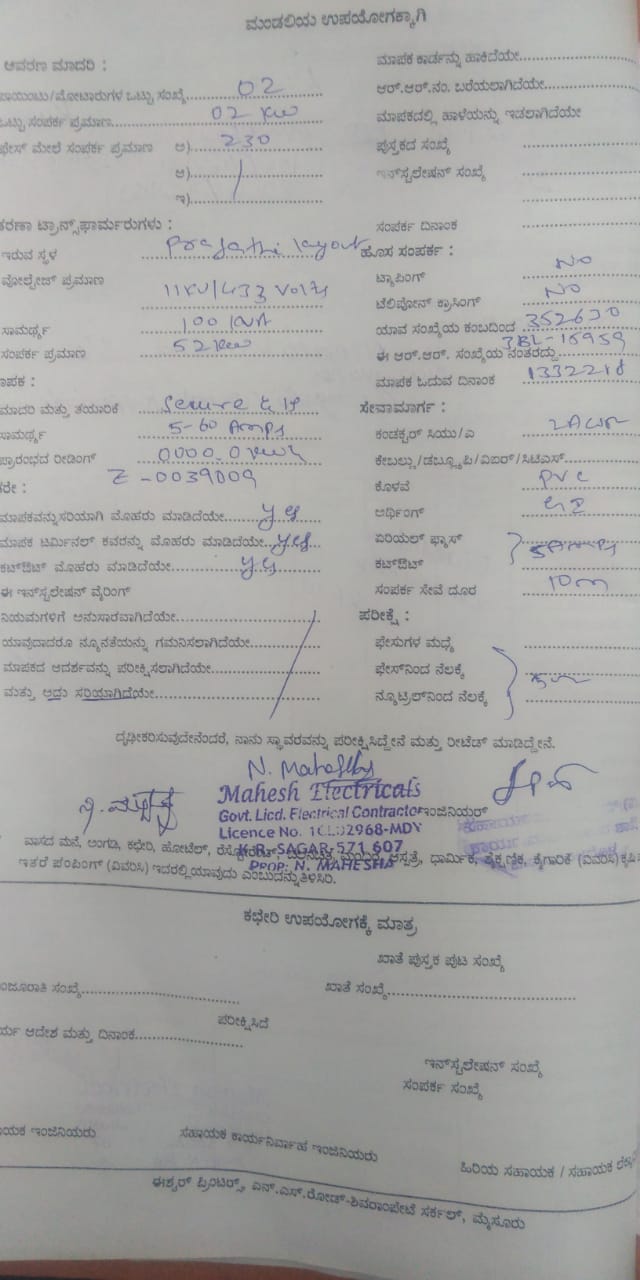 ಮಂಡಲಿಯ ಉಪಯೋಗಕ್ಕಾಗಿ
ಆವರಣ ಮಾದರಿ :
ಪಾಯಿಂಟು/ಮೋಟಾರುಗಳ ಒಟ್ಟು ಸಂಖ್ಯೆ 02
ಒಟ್ಟು ಸಂಪರ್ಕ ಪ್ರಮಾಣ 02 KW
ಫೇಸ್ ಮೇಲೆ ಸಂಪರ್ಕ ಪ್ರಮಾಣ ಅ) 230
ಆ)
ಇ)
ಟ್ರಾನ್ಸ್‌ಫಾರ್ಮರುಗಳು :
ಇರುವ ಸ್ಥಳ layout
ವೋಲ್ಟೇಜ್ ಪ್ರಮಾಣ 11KV/433 Volts
ಸಾಮರ್ಥ್ಯ 100 KVA
ಸಂಪರ್ಕ ಪ್ರಮಾಣ 52 KW
ಮಾಪಕ :
ಮಾದರಿ ಮತ್ತು ತಯಾರಿಕೆ Secure
ಸಾಮರ್ಥ್ಯ 5-60 Amps
ಪ್ರಾರಂಭದ ರೀಡಿಂಗ್ 0000.0
Z-0039009
ಮಾಪಕವನ್ನು ಸರಿಯಾಗಿ ಮೊಹರು ಮಾಡಿದೆಯೇ yes
ಮಾಪಕ ಟರ್ಮಿನಲ್ ಕವರನ್ನು ಮೊಹರು ಮಾಡಿದೆಯೇ yes
ಕಟ್‌ಔಟ್ ಮೊಹರು ಮಾಡಿದೆಯೇ yes
ಈ ಇನ್‌ಸ್ಟಲೇಷನ್ ವೈರಿಂಗ್
ನಿಯಮಗಳಿಗೆ ಅನುಸಾರವಾಗಿದೆಯೇ
ಯಾವುದಾದರೂ ನ್ಯೂನತೆಯನ್ನು ಗಮನಿಸಲಾಗಿದೆಯೇ
ಮಾಪಕದ ಆದರ್ಶವನ್ನು ಪರೀಕ್ಷಿಸಲಾಗಿದೆಯೇ
ಮತ್ತು ಅದು ಸರಿಯಾಗಿದೆಯೇ
ಮಾಪಕ ಕಾರ್ಡನ್ನು ಹಾಕಿದೆಯೇ
ಆರ್.ಆರ್.ನಂ. ಬರೆಯಲಾಗಿದೆಯೇ
ಮಾಪಕದಲ್ಲಿ ಹಾಳೆಯನ್ನು ಇಡಲಾಗಿದೆಯೇ
ಪುಸ್ತಕದ ಸಂಖ್ಯೆ
ಇನ್‌ಸ್ಟಲೇಷನ್ ಸಂಖ್ಯೆ
ಸಂಪರ್ಕ ದಿನಾಂಕ
ಹೊಸ ಸಂಪರ್ಕ :
ಟ್ಯಾಪಿಂಗ್ NO
ಟೆಲಿಪೋನ್ ಕ್ರಾಸಿಂಗ್ NO
ಯಾವ ಸಂಖ್ಯೆಯ ಕಂಬದಿಂದ 352630
ಈ ಆರ್.ಆರ್. ಸಂಖ್ಯೆಯ ನಂತರದ್ದು
ಮಾಪಕ ಓದುವ ದಿನಾಂಕ
ಸೇವಾಮಾರ್ಗ :
ಕಂಡಕ್ಟರ್ ಸಿಯು/ಎ
ಕೇಬಲ್ಲು/ಡಬ್ಲ್ಯೂಪಿ/ಎಐಆರ್/ಸಿಟಿಎಸ್
ಕೊಳವೆ PVC
ಅರ್ಥಿಂಗ್
ಏರಿಯಲ್ ಫ್ಯೂಸ್
ಕಟ್‌ಔಟ್
ಸಂಪರ್ಕ ಸೇವೆ ದೂರ 10m
ಪರೀಕ್ಷೆ :
ಫೇಸುಗಳ ಮಧ್ಯೆ
ಫೇಸ್‌ನಿಂದ ನೆಲಕ್ಕೆ
ನ್ಯೂಟ್ರಲ್‌ನಿಂದ ನೆಲಕ್ಕೆ
ದೃಢೀಕರಿಸುವುದೇನೆಂದರೆ, ನಾನು ಸ್ಥಾವರವನ್ನು ಪರೀಕ್ಷಿಸಿದ್ದೇನೆ ಮತ್ತು ರೀಟೆಡ್ ಮಾಡಿದ್ದೇನೆ.
Mahesh Electricals
Govt. Licd. Electrical Contractor ಇಂಜಿನಿಯರ್
Licence No.
K.R. SAGAR-571 607
PROP: N. MAHESHA
ವಾಸದ ಮನೆ, ಅಂಗಡಿ, ಕಛೇರಿ, ಹೋಟೆಲ್, ಆಸ್ಪತ್ರೆ, ಧಾರ್ಮಿಕ, ಶೈಕ್ಷಣಿಕ, ಕೈಗಾರಿಕೆ (ವಿವರಿಸಿ)
ಇತರೆ ಪಂಪಿಂಗ್ (ವಿವರಿಸಿ) ಇದರಲ್ಲಿ ಯಾವುದು ಎಂಬುದನ್ನು ತಿಳಿಸಿರಿ.
ಕಛೇರಿ ಉಪಯೋಗಕ್ಕೆ ಮಾತ್ರ
ಖಾತೆ ಪುಸ್ತಕ ಪುಟ ಸಂಖ್ಯೆ
ಮಂಜೂರಾತಿ ಸಂಖ್ಯೆ ಖಾತೆ ಸಂಖ್ಯೆ
ಪರೀಕ್ಷಿಸಿದೆ
ಆದೇಶ ಮತ್ತು ದಿನಾಂಕ
ಇನ್‌ಸ್ಟಲೇಷನ್ ಸಂಖ್ಯೆ
ಸಂಪರ್ಕ ಸಂಖ್ಯೆ
ಇಂಜಿನಿಯರು ಸಹಾಯಕ ಕಾರ್ಯನಿರ್ವಾಹ ಇಂಜಿನಿಯರು ಹಿರಿಯ ಸಹಾಯಕ / ಸಹಾಯಕ
ಈಶ್ವರ್ ಪ್ರಿಂಟರ್ಸ್, ಎನ್.ಎಸ್.ರೋಡ್-ಶಿವರಾಂಪೇಟೆ ಸರ್ಕಲ್, ಮೈಸೂರು